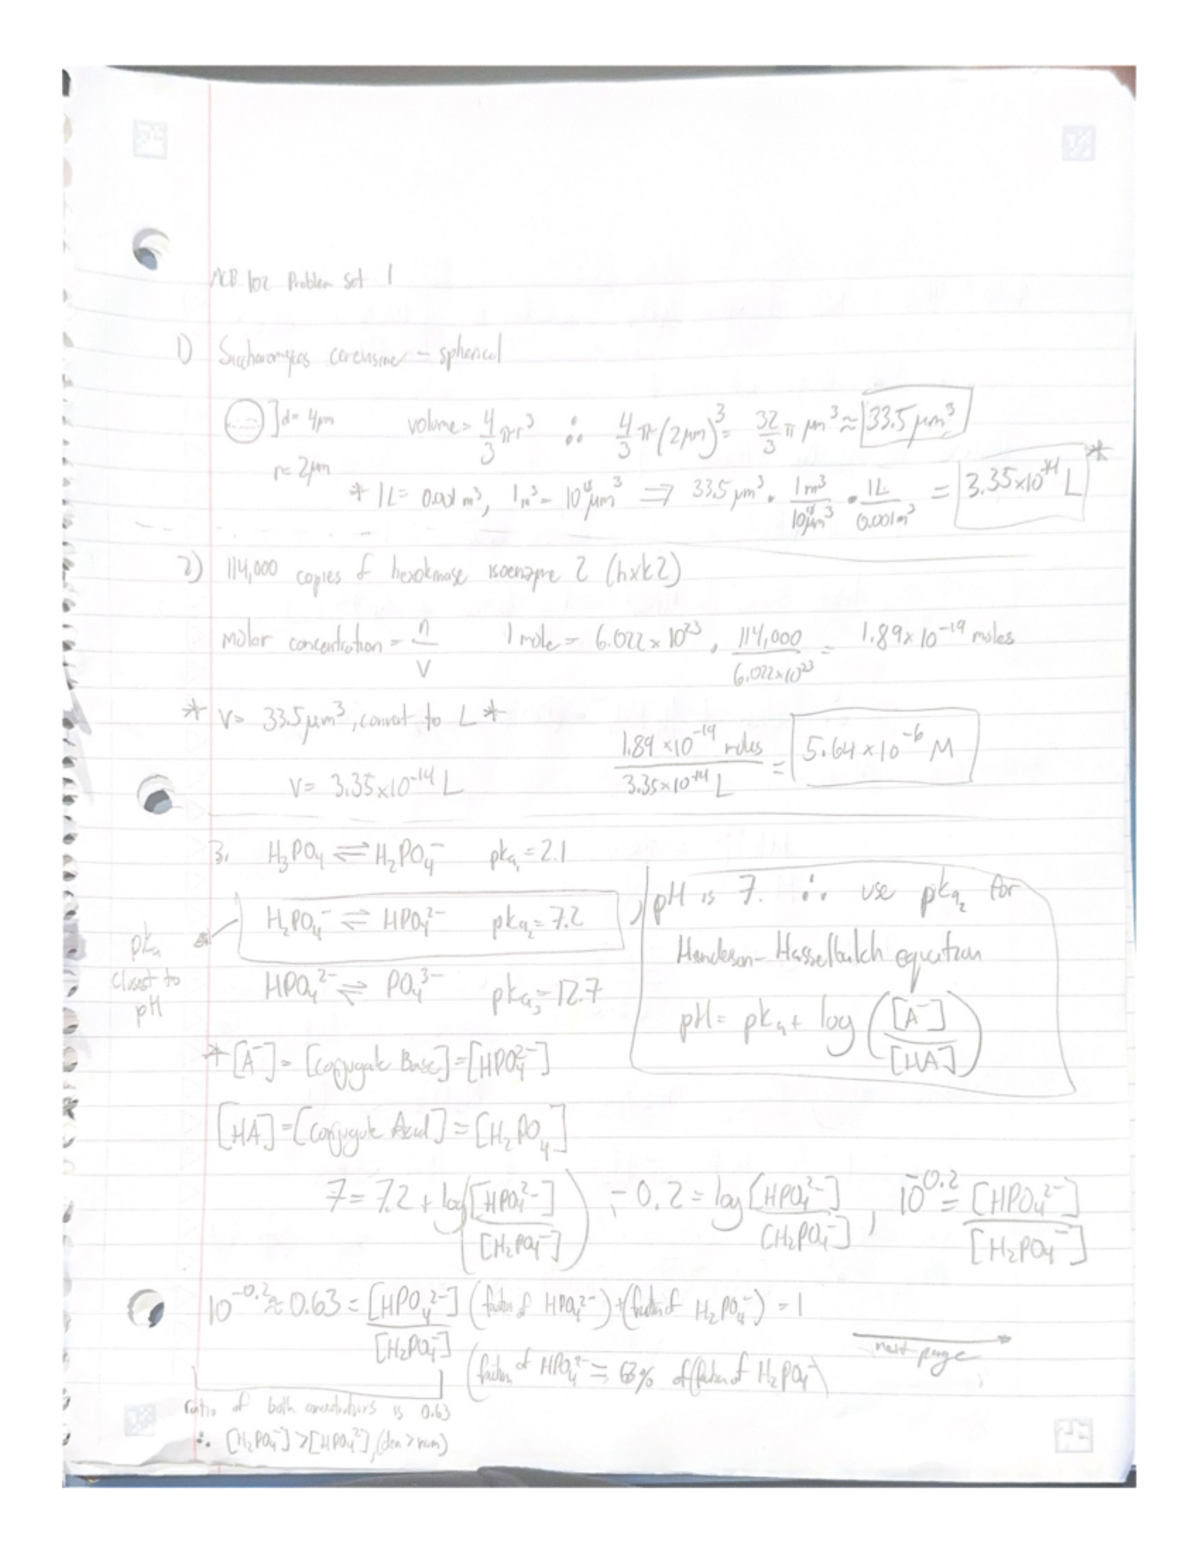 MCB 102 Problem Set 1
1) Saccharomyces cerevisiae - spherical
]d= 4μm volume= 4/3 πr³ ∴ 4/3 π(2μm)³= 32/3 π μm³≈ 33.5 μm³
r= 2μm
* 1L= 0.001 m³, 1m³= 10¹⁸μm³ ⟹ 33.5 μm³ · 1m³/10¹⁸μm³ · 1L/0.001m³ = 3.35x10⁻¹⁴ L *
2) 114,000 copies of hexokinase isoenzyme 2 (hxk2)
molar concentration = n/V 1 mole = 6.022 x 10²³, 114,000/6.022x10²³ = 1.89x 10⁻¹⁹ moles
* V= 33.5μm³, convert to L *
V= 3.35x10⁻¹⁴ L 1.89 x10⁻¹⁹ moles/3.35x10⁻¹⁴ L = 5.64 x10⁻⁶ M
3. H₃PO₄ ⇌ H₂PO₄⁻ pka₁ = 2.1
H₂PO₄⁻ ⇌ HPO₄²⁻ pka₂= 7.2
pka closest to pH
HPO₄²⁻ ⇌ PO₄³⁻ pka₃= 12.7
pH is 7. ∴ use pka₂ for
Henderson-Hasselbalch equation
pH= pka+ log([A⁻]/[HA])
* [A⁻] = [Conjugate Base] = [HPO₄²⁻]
[HA] = [Conjugate Acid] = [H₂PO₄]
7 = 7.2 + log([HPO₄²⁻]/[H₂PO₄⁻]) ; -0.2 = log [HPO₄²⁻]/[H₂PO₄⁻], 10⁻⁰·² = [HPO₄²⁻]/[H₂PO₄⁻]
10⁻⁰·² ≈ 0.63 = [HPO₄²⁻]/[H₂PO₄⁻] (fraction of HPO₄²⁻) + (fraction of H₂PO₄⁻) = 1
(fraction of HPO₄²⁻ = 63% of fraction of H₂PO₄⁻)
next page
ratio of both concentrations is 0.63
∴ [H₂PO₄⁻] > [HPO₄²⁻], (den > num)